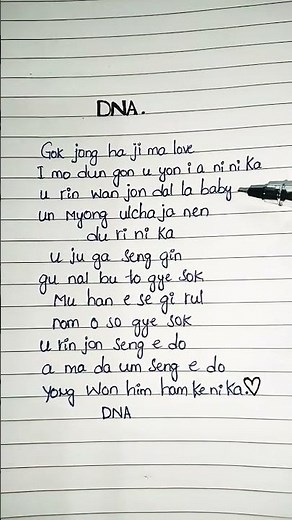 DNA.
Gok jong ha ji ma love
I mo dun gon u yon i a ni ni ka
u rin wan jon dal la baby
un Myong ul cha ja nen
du ri ni ka
u ju ga seng gin
gu nal bu to gye sok
Mu han e se gi rul
nom o so gye sok
u rin jon seng e do
a ma da um seng e do
yong won him ham ke ni ka.♡
DNA